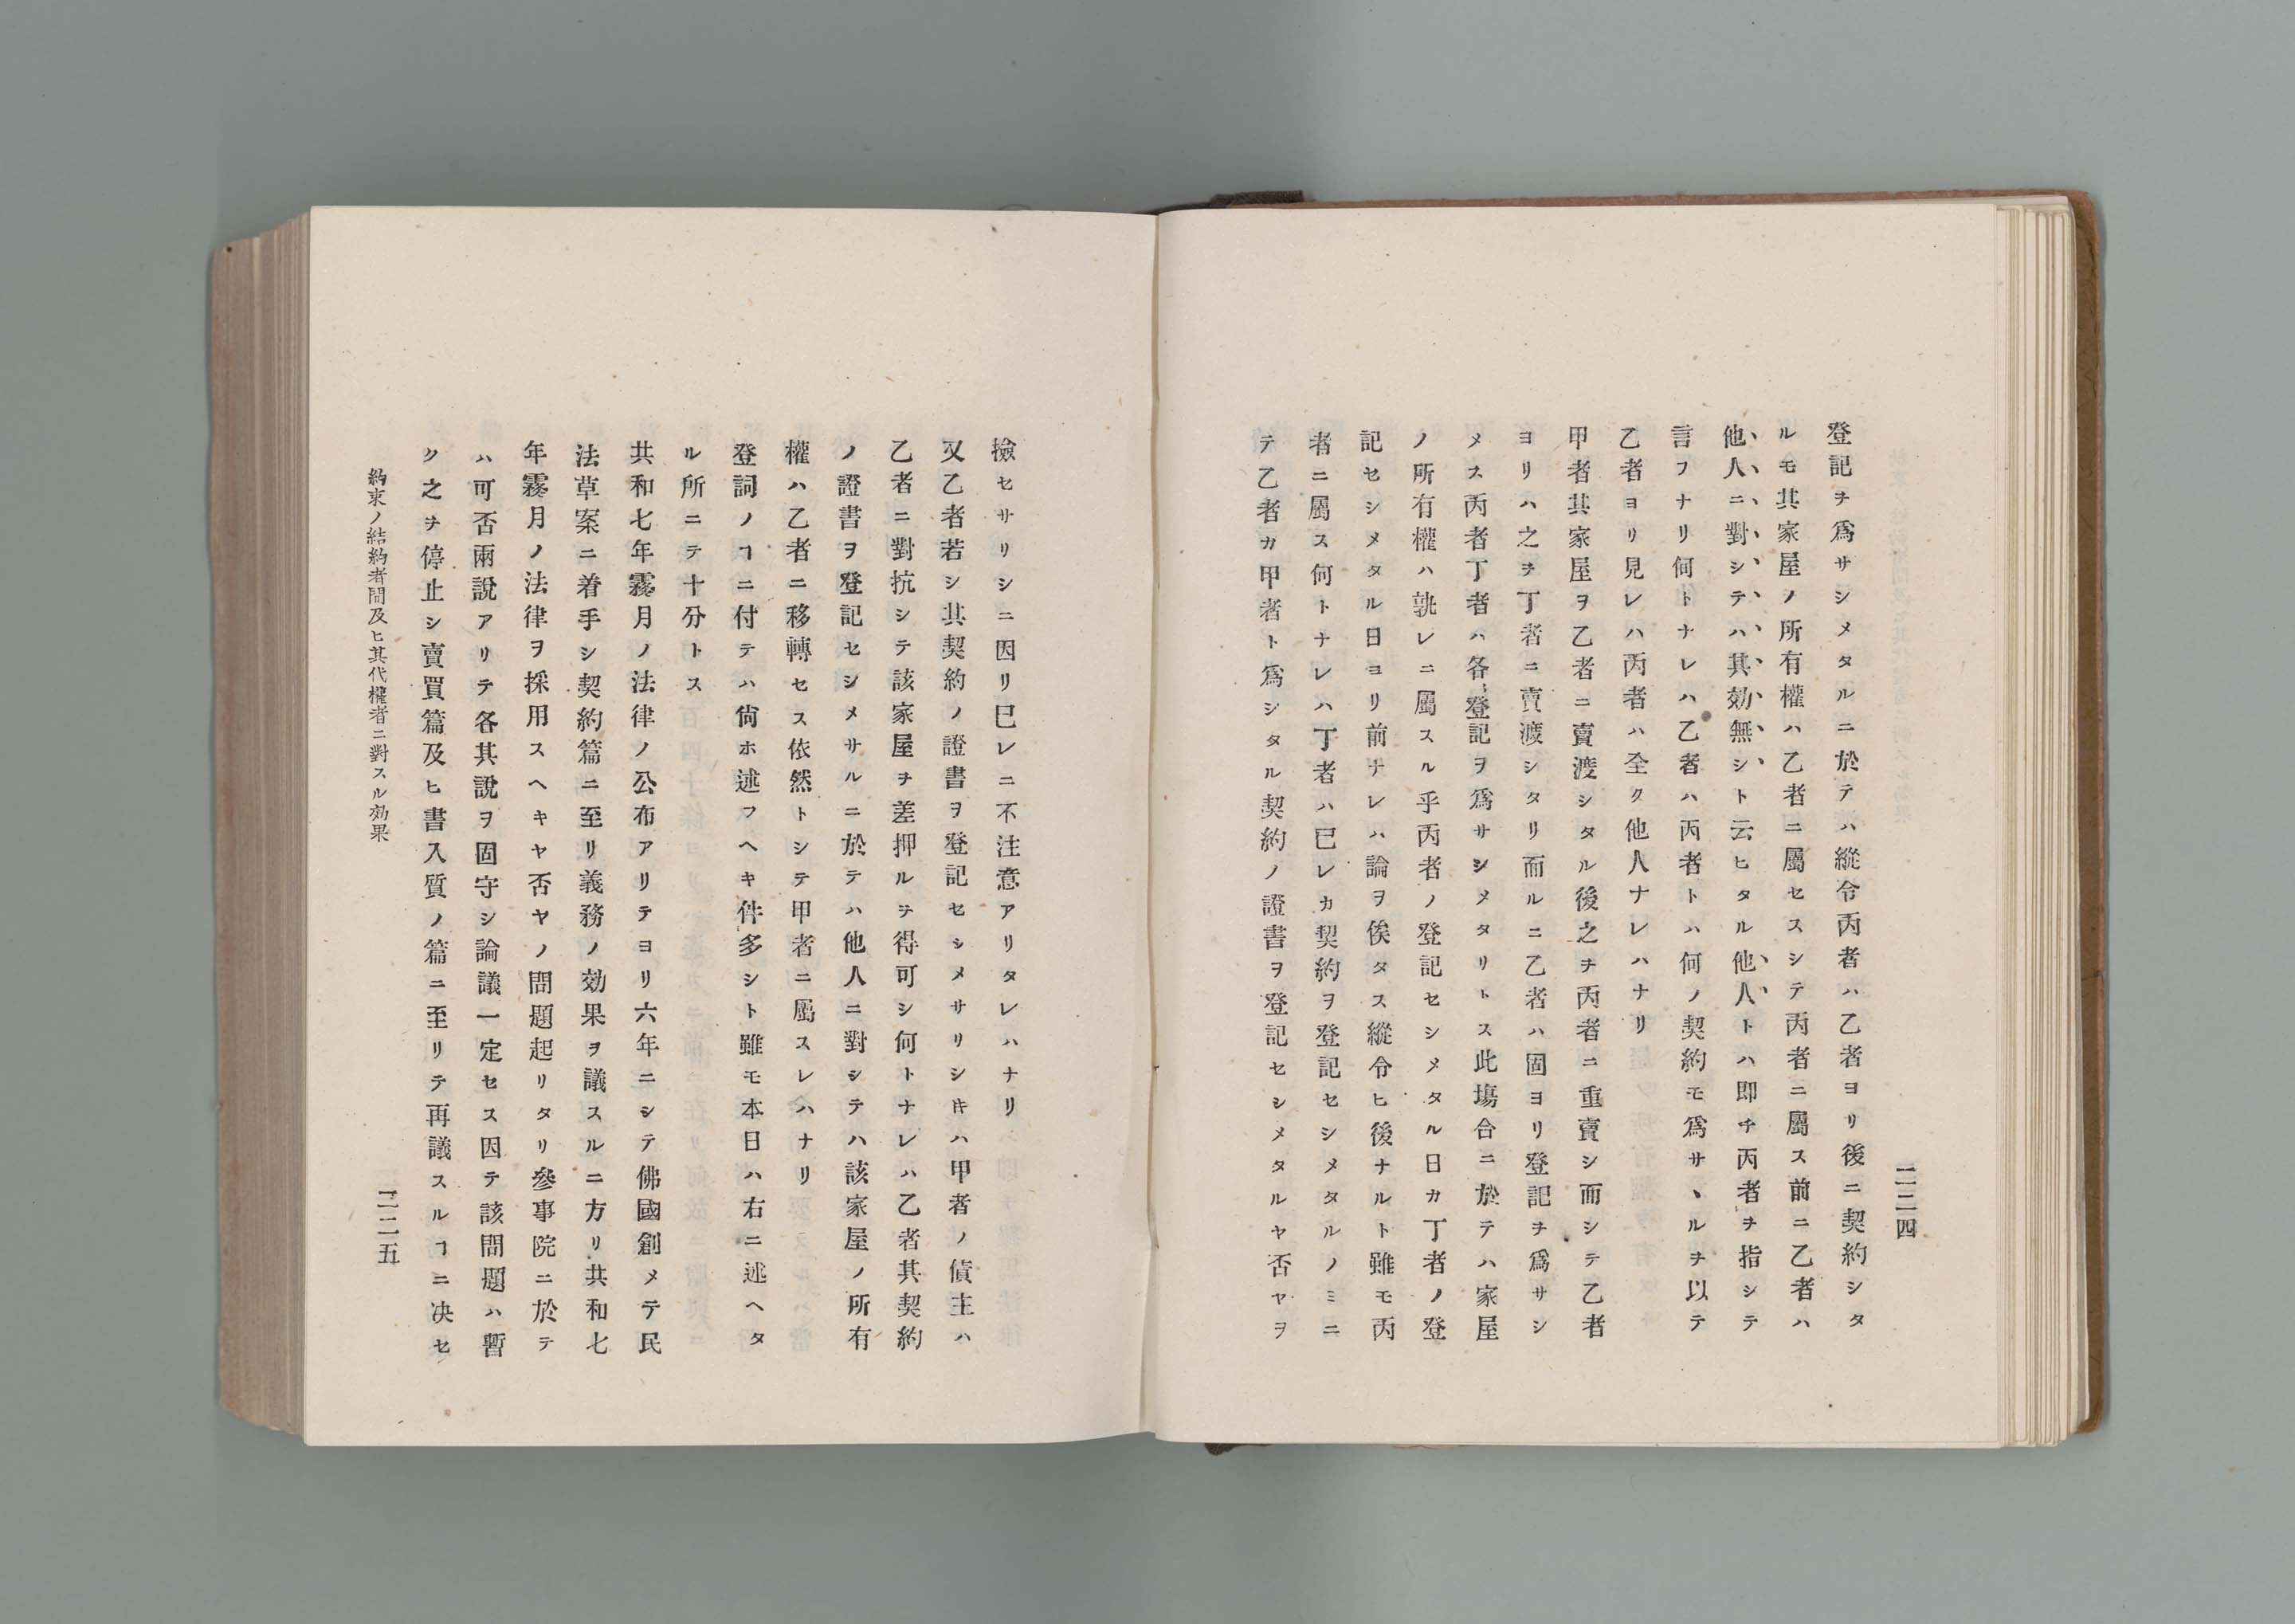 二二四
登記ヲ爲サシメタルニ於テハ縱令丙者ハ乙者ヨリ後ニ契約シタ
ルモ其家屋ノ所有權ハ乙者ニ屬セスシテ丙者ニ屬ス前ニ乙者ハ
他人ニ對シテハ其効無シト云ヒタル他人トハ即チ丙者ヲ指シテ
言フナリ何トナレハ乙者ハ丙者トハ何ノ契約モ爲サヽルヲ以テ
乙者ヨリ見レハ丙者ハ全ク他人ナレハナリ
甲者其家屋ヲ乙者ニ賣渡シタル後之ヲ丙者ニ重賣シ而シテ乙者
ヨリハ之ヲ丁者ニ賣渡シタリ而ルニ乙者ハ固ヨリ登記ヲ爲サシ
メス丙者丁者ハ各登記ヲ爲サシメタリトス此塲合ニ於テハ家屋
ノ所有權ハ孰レニ屬スル乎丙者ノ登記セシメタル日カ丁者ノ登
記セシメタル日ヨリ前ナレハ論ヲ俟タス縱令ヒ後ナルト雖モ丙
者ニ屬ス何トナレハ丁者ハ已レカ契約ヲ登記セシメタルノミニ
テ乙者カ甲者ト爲シタル契約ノ證書ヲ登記セシメタルヤ否ヤヲ
撿セサリシニ因リ已レニ不注意アリタレハナリ
又乙者若シ其契約ノ證書ヲ登記セシメサリシキハ甲者ノ債主ハ
乙者ニ對抗シテ該家屋ヲ差押ルヲ得可シ何トナレハ乙者其契約
ノ證書ヲ登記セシメサルニ於テハ他人ニ對シテハ該家屋ノ所有
權ハ乙者ニ移轉セス依然トシテ甲者ニ屬スレハナリ
登詞ノヿニ付テハ尙ホ述フヘキ件多シト雖モ本日ハ右ニ述ヘタ
ル所ニテ十分トス
共和七年霧月ノ法律ノ公布アリテヨリ六年ニシテ佛國創メテ民
法草案ニ着手シ契約篇ニ至リ義務ノ効果ヲ議スルニ方リ共和七
年霧月ノ法律ヲ採用スヘキヤ否ヤノ問題起リタリ參事院ニ於テ
ハ可否兩說アリテ各其說ヲ固守シ論議一定セス因テ該問題ハ暫
ク之ヲ停止シ賣買篇及ヒ書入質ノ篇ニ至リテ再議スルヿニ决セ
約束ノ結約者間及ヒ其代權者ニ對スル効果
二二五